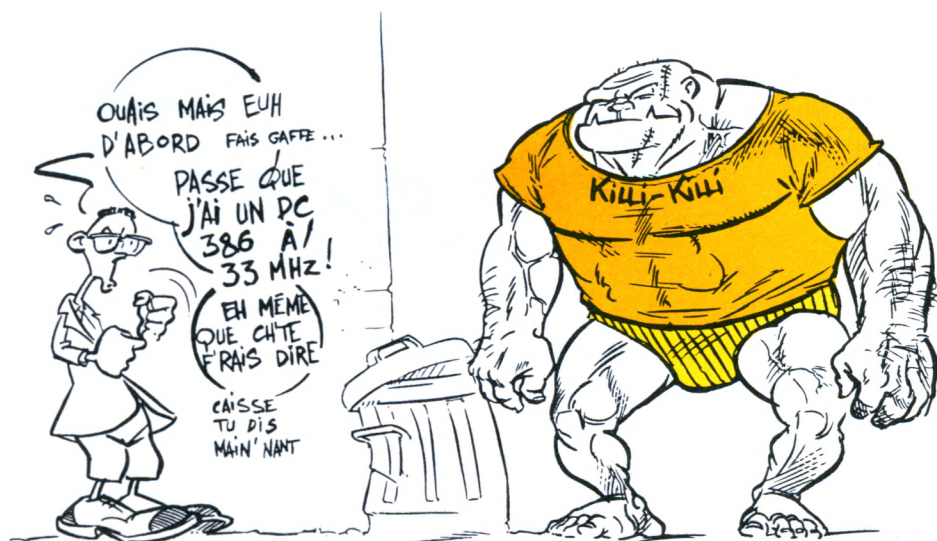 OUAIS MAIS EUH
D'ABORD FAIS GAFFE...
PASSE QUE
J'AI UN PC
386 À
33 MHZ!
EH MÊME
QUE CH'TE
F'RAIS DIRE
CAISSE
TU DIS
MAIN'NANT
KiLLi-KiLLi